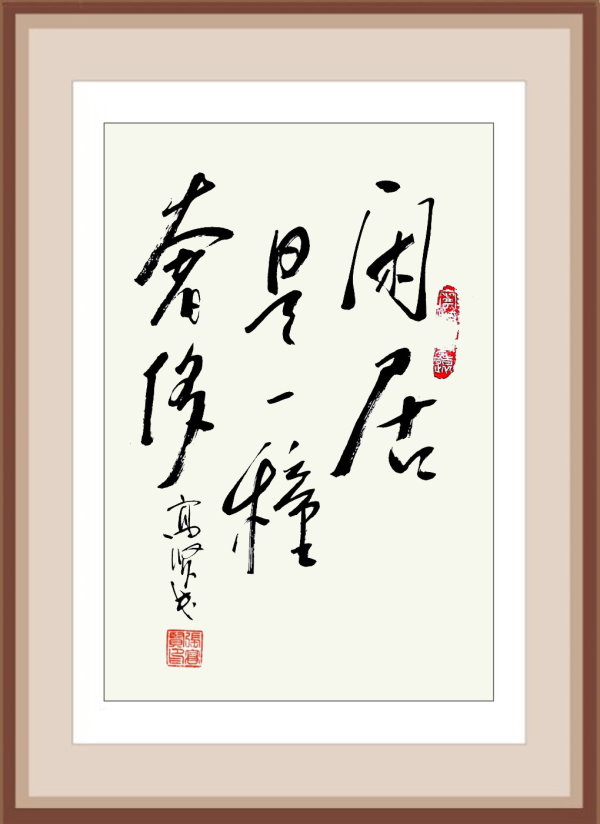 闲居
是一种
奢侈
高贤书